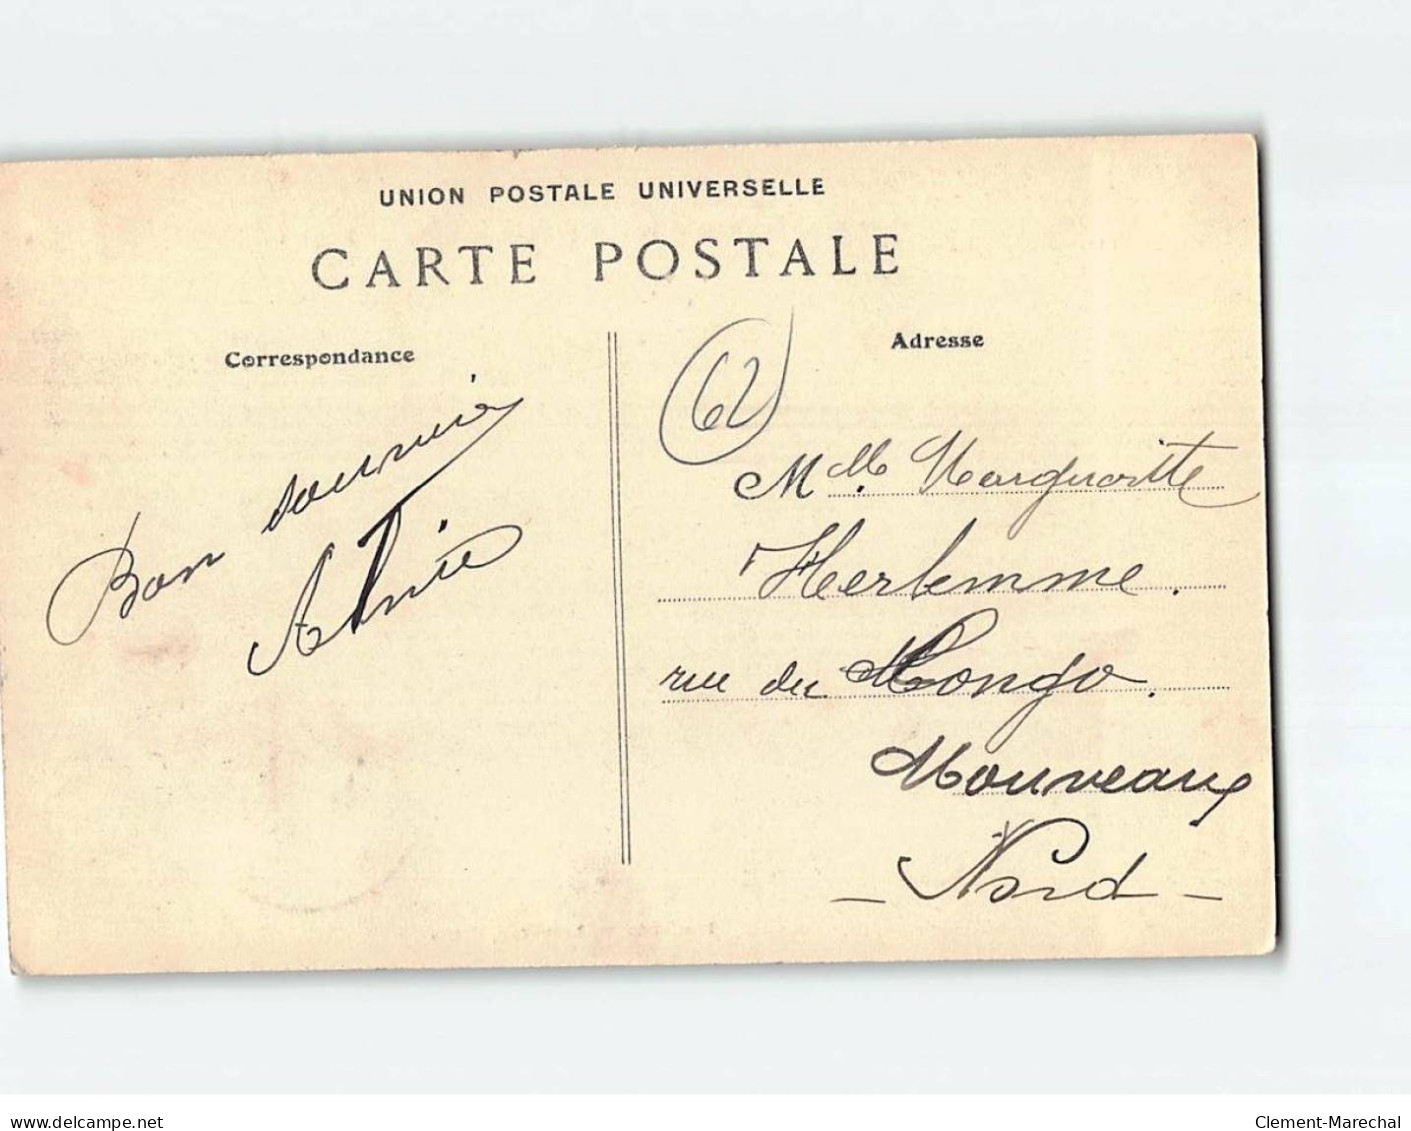 UNION POSTALE UNIVERSELLE
CARTE POSTALE
Correspondance
Adresse
62
Bon souvenir
Mlle Marguerite
Herlemme.
rue du Congo.
Mouveaux
- Nord -
www.delcampe.net
Clement-Marechal